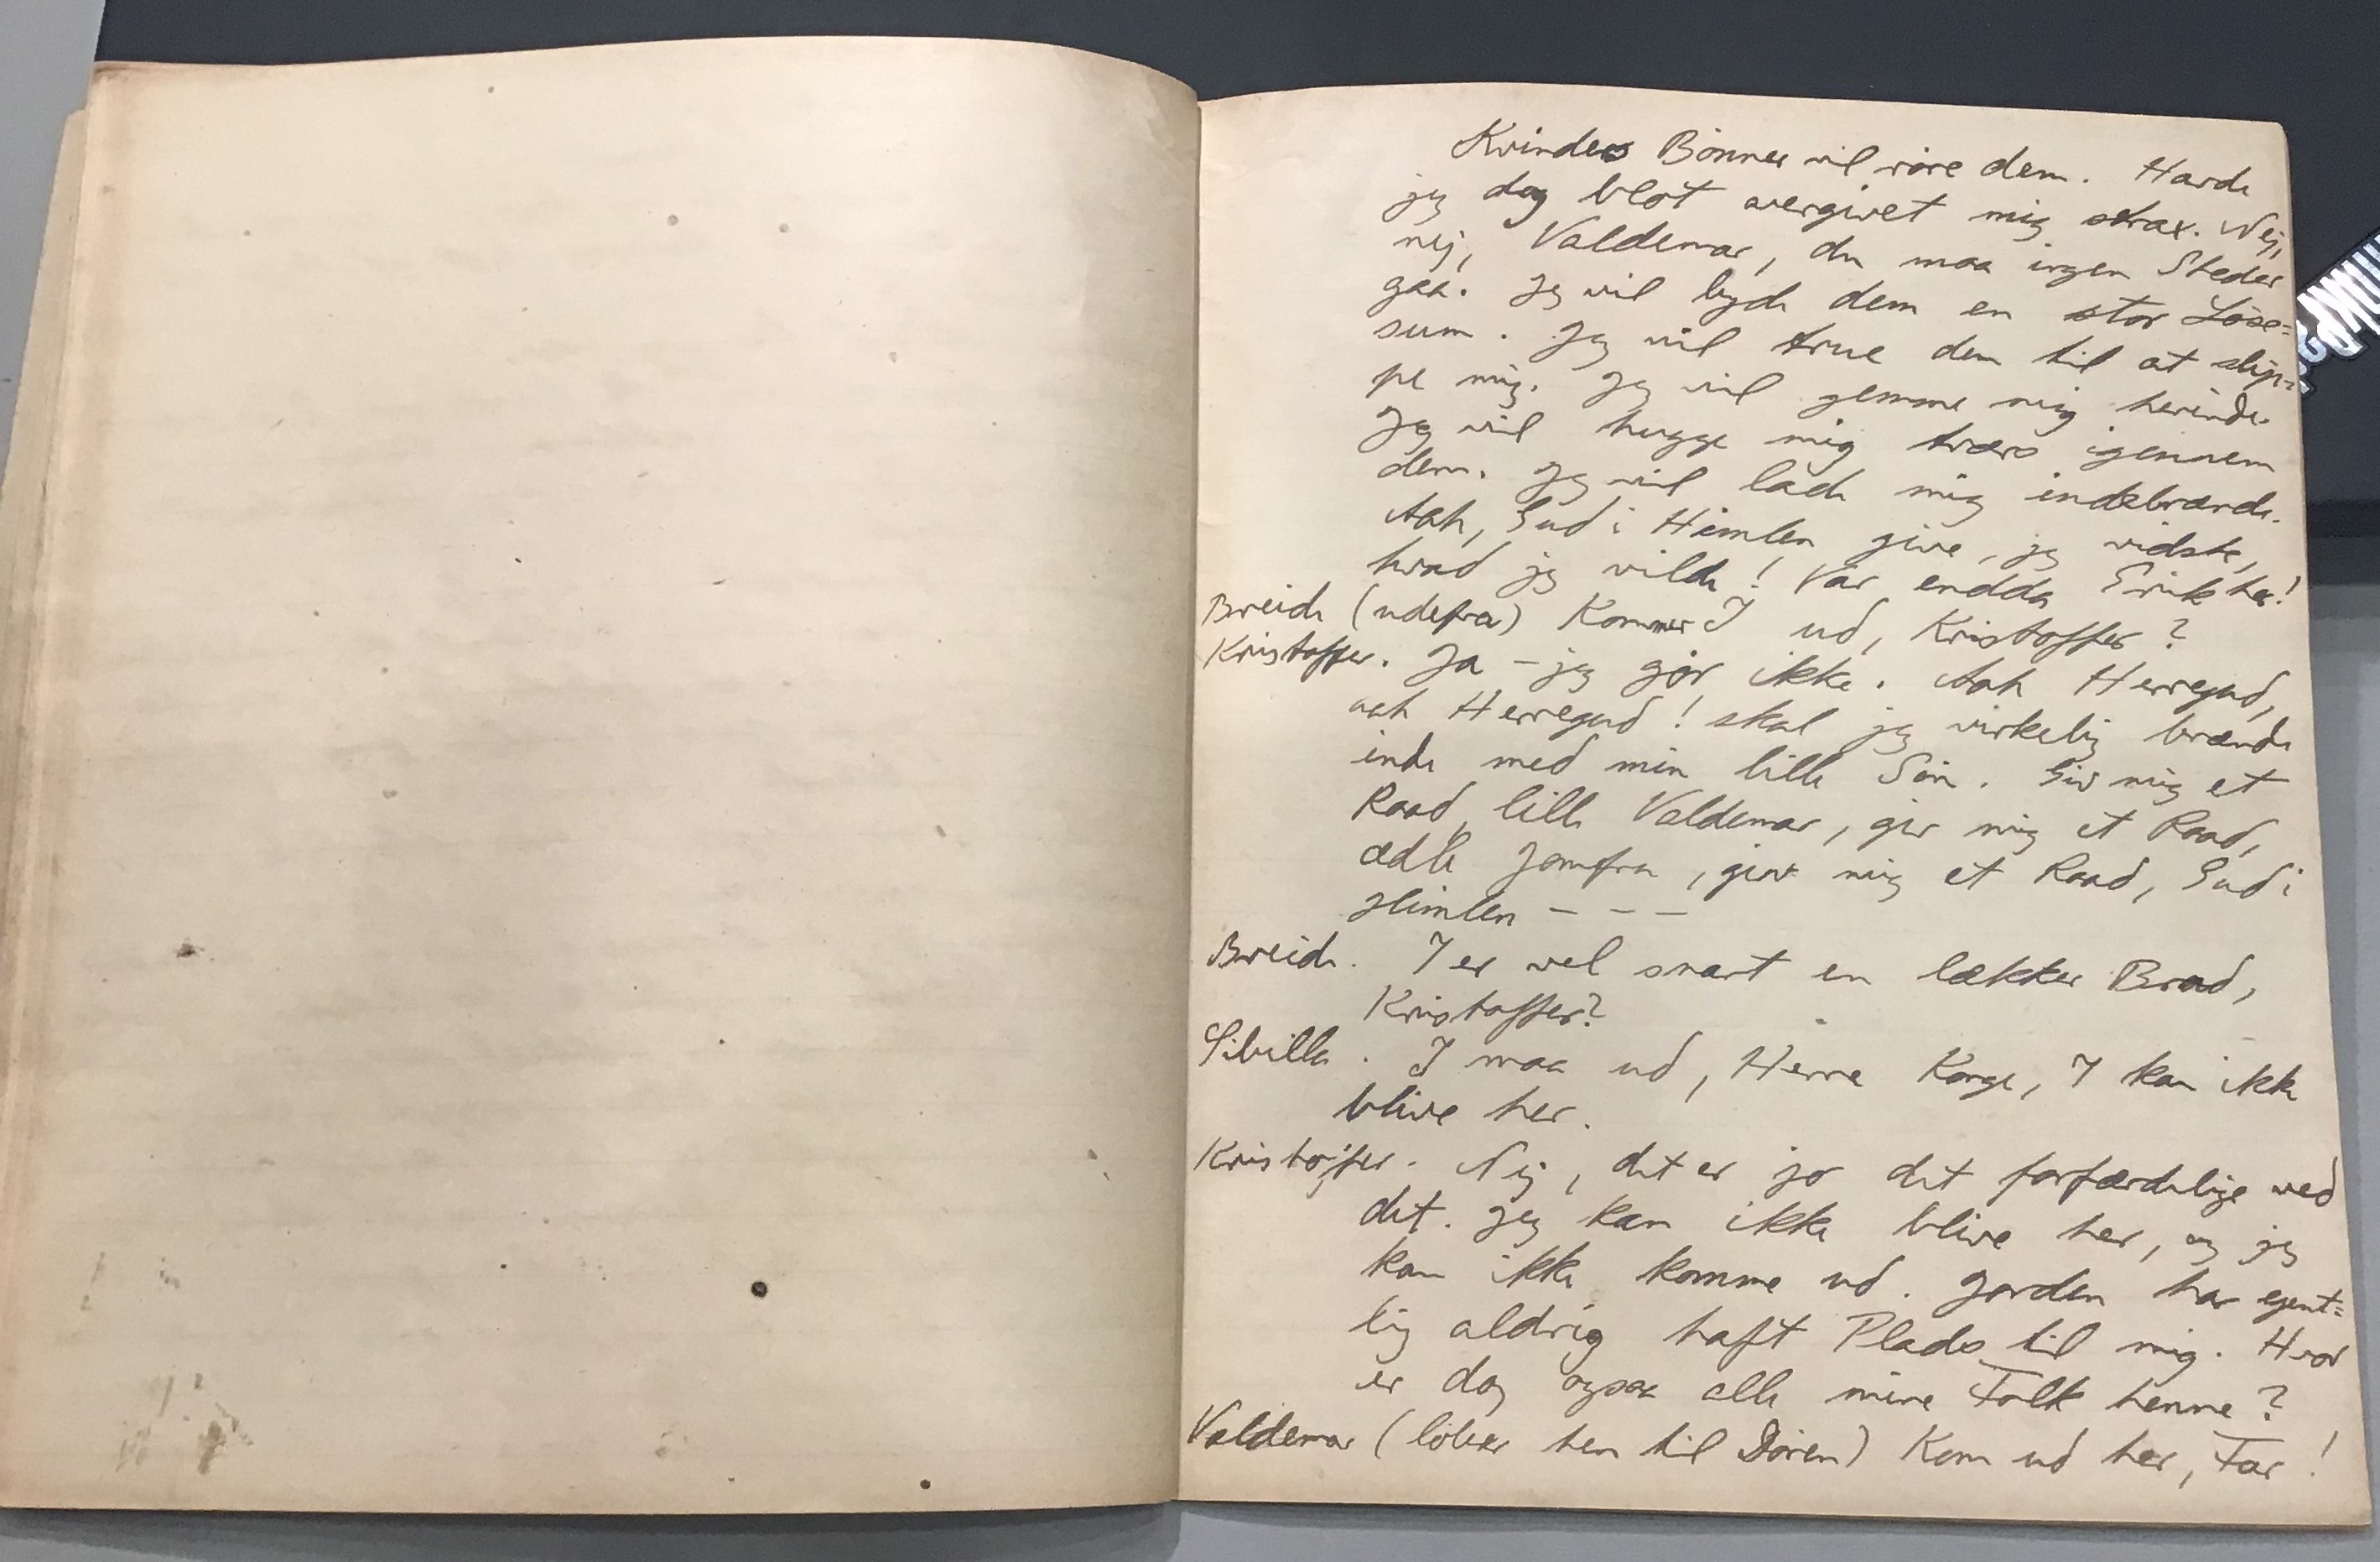 Kvinders Bönner vil röre dem. Havde
jeg dog blot overgivet mig strax. Nej,
nej, Valdemar, du maa ingen Steder
gaa. Jeg vil byde dem en stor Löse=
sum. Jeg vil true dem til at slip=
pe mig. Jeg vil gemme mig herinde.
Jeg vil hugge mig tværs igennem
dem. Jeg vil lade mig indebrænde.
Aah, Gud i Himlen give, jeg vidste,
hvad jeg vilde! Var endda Erik her!
Breide (udefra) Kommer I ud, Kristoffer?
Kristoffer. Ja – jeg gör ikke. Aah Herregud,
aah Herregud! skal jeg virkelig brænde
inde med min lille Sön. Giv mig et
Raad, lille Valdemar, giv mig et Raad,
ædle Jomfru, giv mig et Raad, Gud i
Himlen – – –
Breide. I er vel snart en lækker Brad,
Kristoffer?
Sibilla. I maa ud, Herre Konge, I kan ikke
blive her.
Kristoffer. Nej, det er jo det forfærdelige ved
det. Jeg kan ikke blive her, og jeg
kan ikke komme ud. Jorden har egent=
lig aldrig haft Plads til mig. Hvor
er dog ogsaa alle mine Folk henne?
Valdemar (löber hen til Dören) Kom ud her, Far!